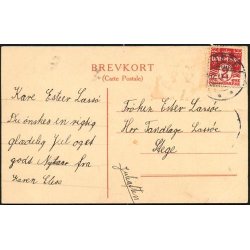 BREVKORT
(Carte Postale)
Kære Ester Lassö
Du önskes en rigtig
glædelig Jul og et
godt Nytaar fra
Karen Elise
Fröken Ester Lassöe
Hr. Tandlæge Lassöe
Stege
Juleaften